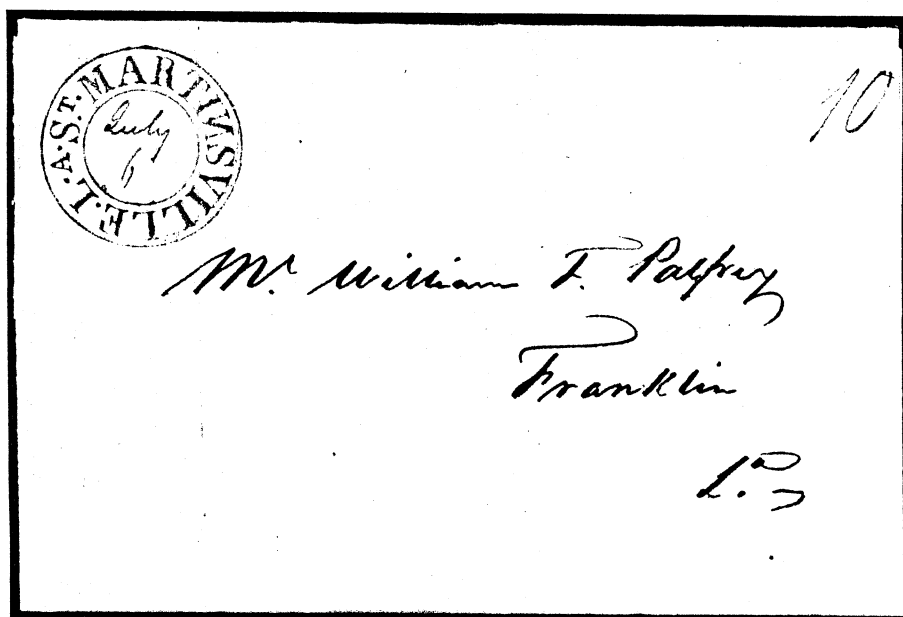 L.A. ST. MARTINSVILLE.
July
6
10
Mr. William F. Palfrey
Franklin
La